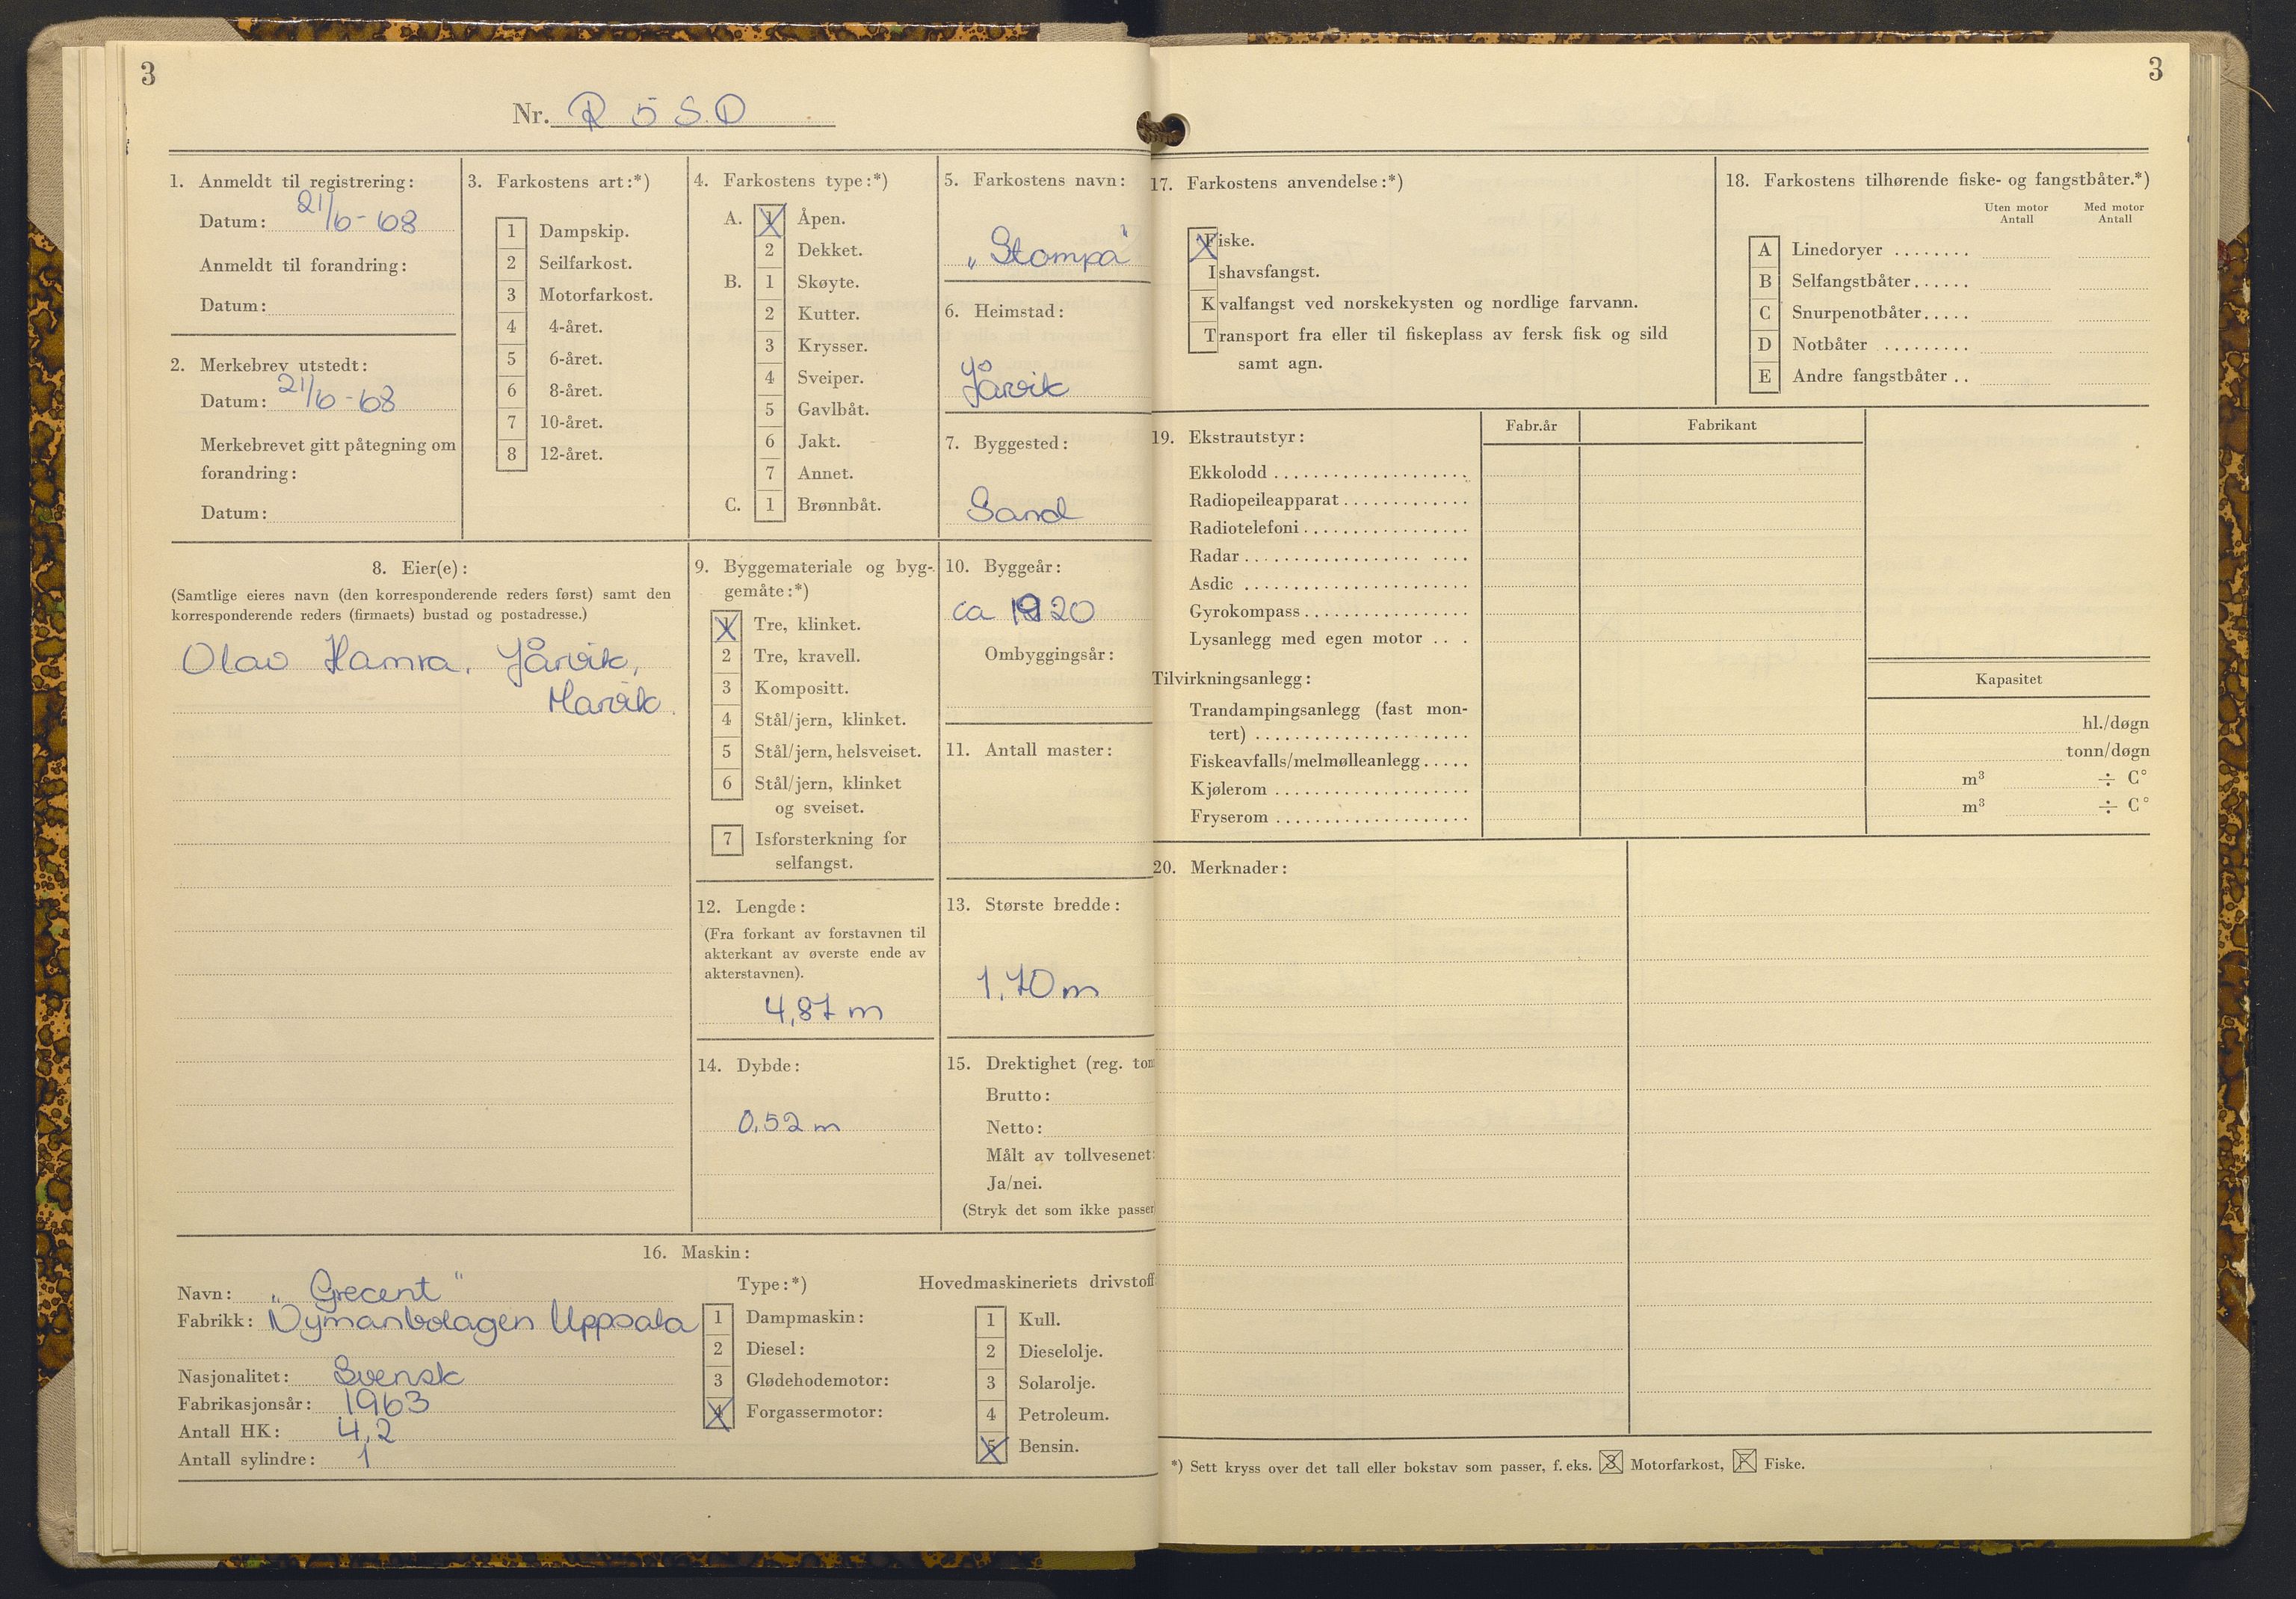 3
Nr. R 5 S.D
1. Anmeldt til registrering:
Datum: 21/6-68
Anmeldt til forandring:
Datum:
2. Merkebrev utstedt:
Datum: 21/6-68
Merkebrevet gitt påtegning om
forandring:
Datum:
3. Farkostens art:*)
1 Dampskip.
2 Seilfarkost.
3 Motorfarkost.
4 4-året.
5 6-året.
6 8-året.
7 10-året.
8 12-året.
4. Farkostens type:*)
A. 1 Åpen.
2 Dekket.
B. 1 Skøyte.
2 Kutter.
3 Krysser.
4 Sveiper.
5 Gavlbåt.
6 Jakt.
7 Annet.
C. 1 Brønnbåt.
5. Farkostens navn:
„Stompa"
6. Heimstad:
Jårvik
7. Byggested:
Sand
8. Eier(e):
(Samtlige eieres navn (den korresponderende reders først) samt den
korresponderende reders (firmaets) bustad og postadresse.)
Olav Hamra. Jårvik,
Marvik.
9. Byggemateriale og byg-
gemåte:*)
1 Tre, klinket.
2 Tre, kravell.
3 Kompositt.
4 Stål/jern, klinket.
5 Stål/jern, helsveiset.
6 Stål/jern, klinket
og sveiset.
7 Isforsterkning for
selfangst.
10. Byggeår:
ca 1920
Ombyggingsår:
11. Antall master:
12. Lengde:
(Fra forkant av forstavnen til
akterkant av øverste ende av
akterstavnen).
4,87 m
13. Største bredde:
1,70 m
14. Dybde:
0.52 m
15. Drektighet (reg. ton
Brutto:
Netto:
Målt av tollvesenet:
Ja/nei.
(Stryk det som ikke passer
16. Maskin:
Navn: „Grecent"
Fabrikk: Nymanbolagen Uppsala
Nasjonalitet: Svensk
Fabrikasjonsår: 1963
Antall HK: 4,2
Antall sylindre: 1
Type:*)
1 Dampmaskin:
2 Diesel:
3 Glødehodemotor:
4 Forgassermotor:
Hovedmaskineriets drivstoff
1 Kull.
2 Dieselolje.
3 Solarolje.
4 Petroleum.
5 Bensin.
3
17. Farkostens anvendelse:*)
Fiske.
Ishavsfangst.
Kvalfangst ved norskekysten og nordlige farvann.
Transport fra eller til fiskeplass av fersk fisk og sild
samt agn.
18. Farkostens tilhørende fiske- og fangstbåter.*)
Uten motor Antall Med motor Antall
A Linedoryer
B Selfangstbåter
C Snurpenotbåter
D Notbåter
E Andre fangstbåter
19. Ekstrautstyr:
Fabr.år Fabrikant
Ekkolodd
Radiopeileapparat
Radiotelefoni
Radar
Asdic
Gyrokompass
Lysanlegg med egen motor
Tilvirkningsanlegg:
Kapasitet
Trandampingsanlegg (fast mon-
tert) hl./døgn
Fiskeavfalls/melmølleanlegg tonn/døgn
Kjølerom m³ ÷ C°
Fryserom m³ ÷ C°
20. Merknader:
*) Sett kryss over det tall eller bokstav som passer, f. eks. 3 Motorfarkost, F Fiske.